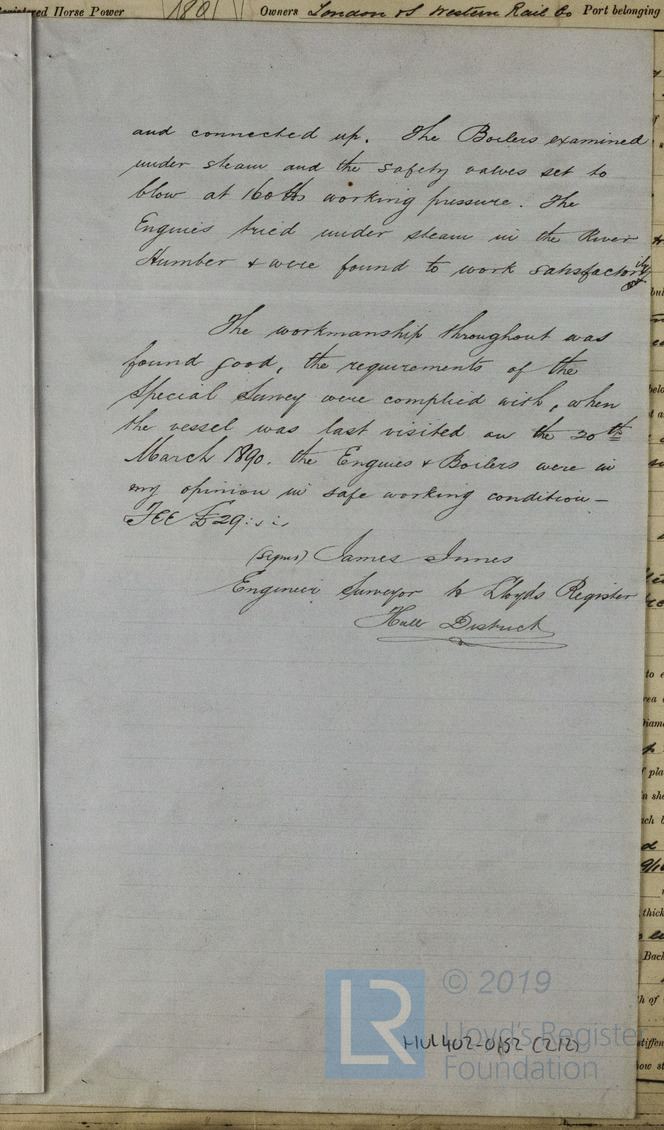 Registered Horse Power 180 Owners London & S Western Rail Co Port belonging
and connected up. The Boilers examined
under steam and the safety valves set to
blow at 160 lbs working pressure. The
Engines tried under steam in the River
Humber & were found to work satisfactorily
The workmanship throughout was
found good, the requirements of the
Special Survey were complied with, when
the vessel was last visited on the 20th
March 1890. the Engines & Boilers were in
my opinion in safe working condition -
FEE £29 : " : "
(Signed) James Innes
Engineer Surveyor to Lloyds Register
Hull District
© 2019
LR
Lloyd's Register
Foundation
HUL402-0152 (2/2)